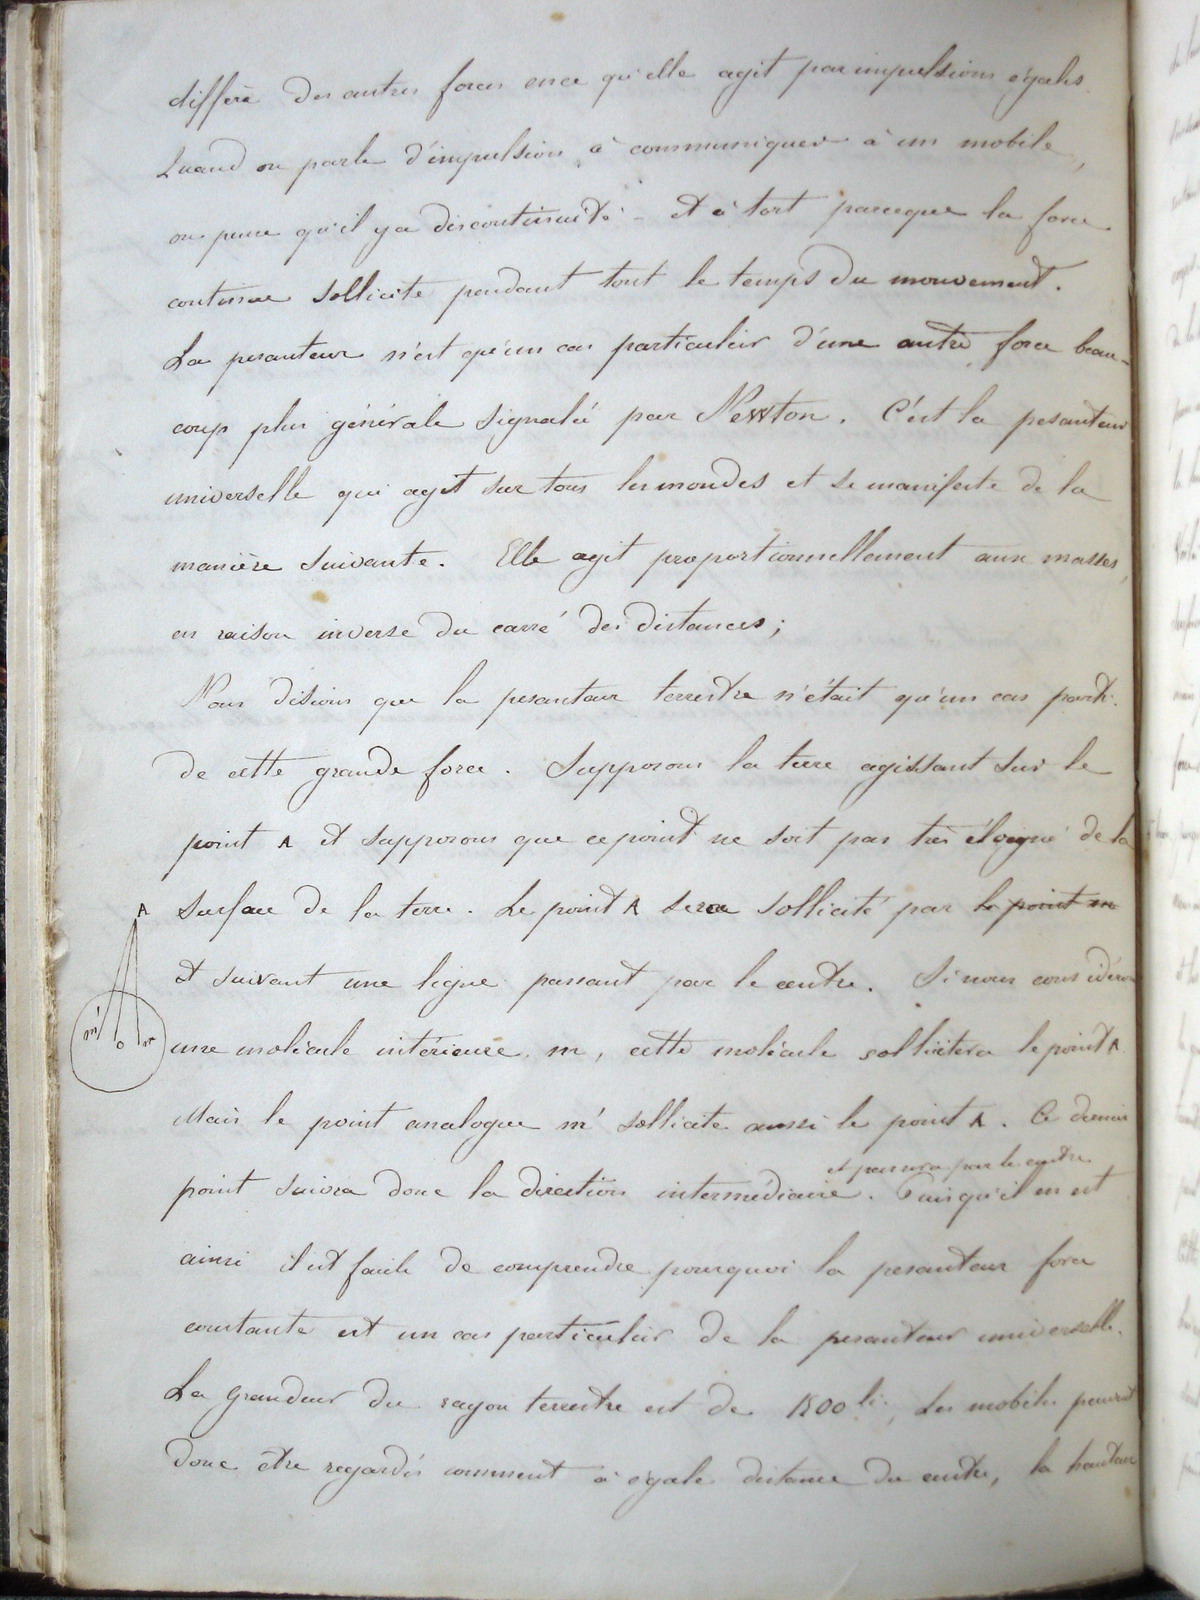 differe des autres forces en ce qu'elle agit par impulsions égales.
Quand on parle d'impulsion à communiquer à un mobile,
on pense qu'il y a discontinuité - et à tort parceque la force
continue sollicite pendant tout le temps du mouvement.
La pesanteur n'est qu'un cas particulier d'une autre force beau-
coup plus générale signalée par Newton. C'est la pesanteur
universelle qui agit sur tous les mondes et se manifeste de la
manière suivante. Elle agit proportionnellement aux masses,
en raison inverse du carré des distances;
Nous disions que la pesanteur terrestre n'était qu'un cas parti.
de cette grande force. Supposons la terre agissant sur le
point A et supposons que ce point ne soit pas très éloigné de la
surface de la terre. Le point A sera sollicité par le point m
et suivant une ligne passant par le centre. Si nous considérons
une molécule intérieure m, cette molécule sollicitera le point A
Mais le point analogue m' sollicite aussi le point A. Ce dernier
et passera par le centre
point suivra donc la direction intermédiaire. Puisqu'il en est
ainsi il est facile de comprendre pourquoi la pesanteur force
constante est un cas particulier de la pesanteur universelle.
La grandeur du rayon terrestre est de 1500 li. Les mobiles peuvent
donc être regardés comment à égale distance du centre, la hauteur
A
m' o m